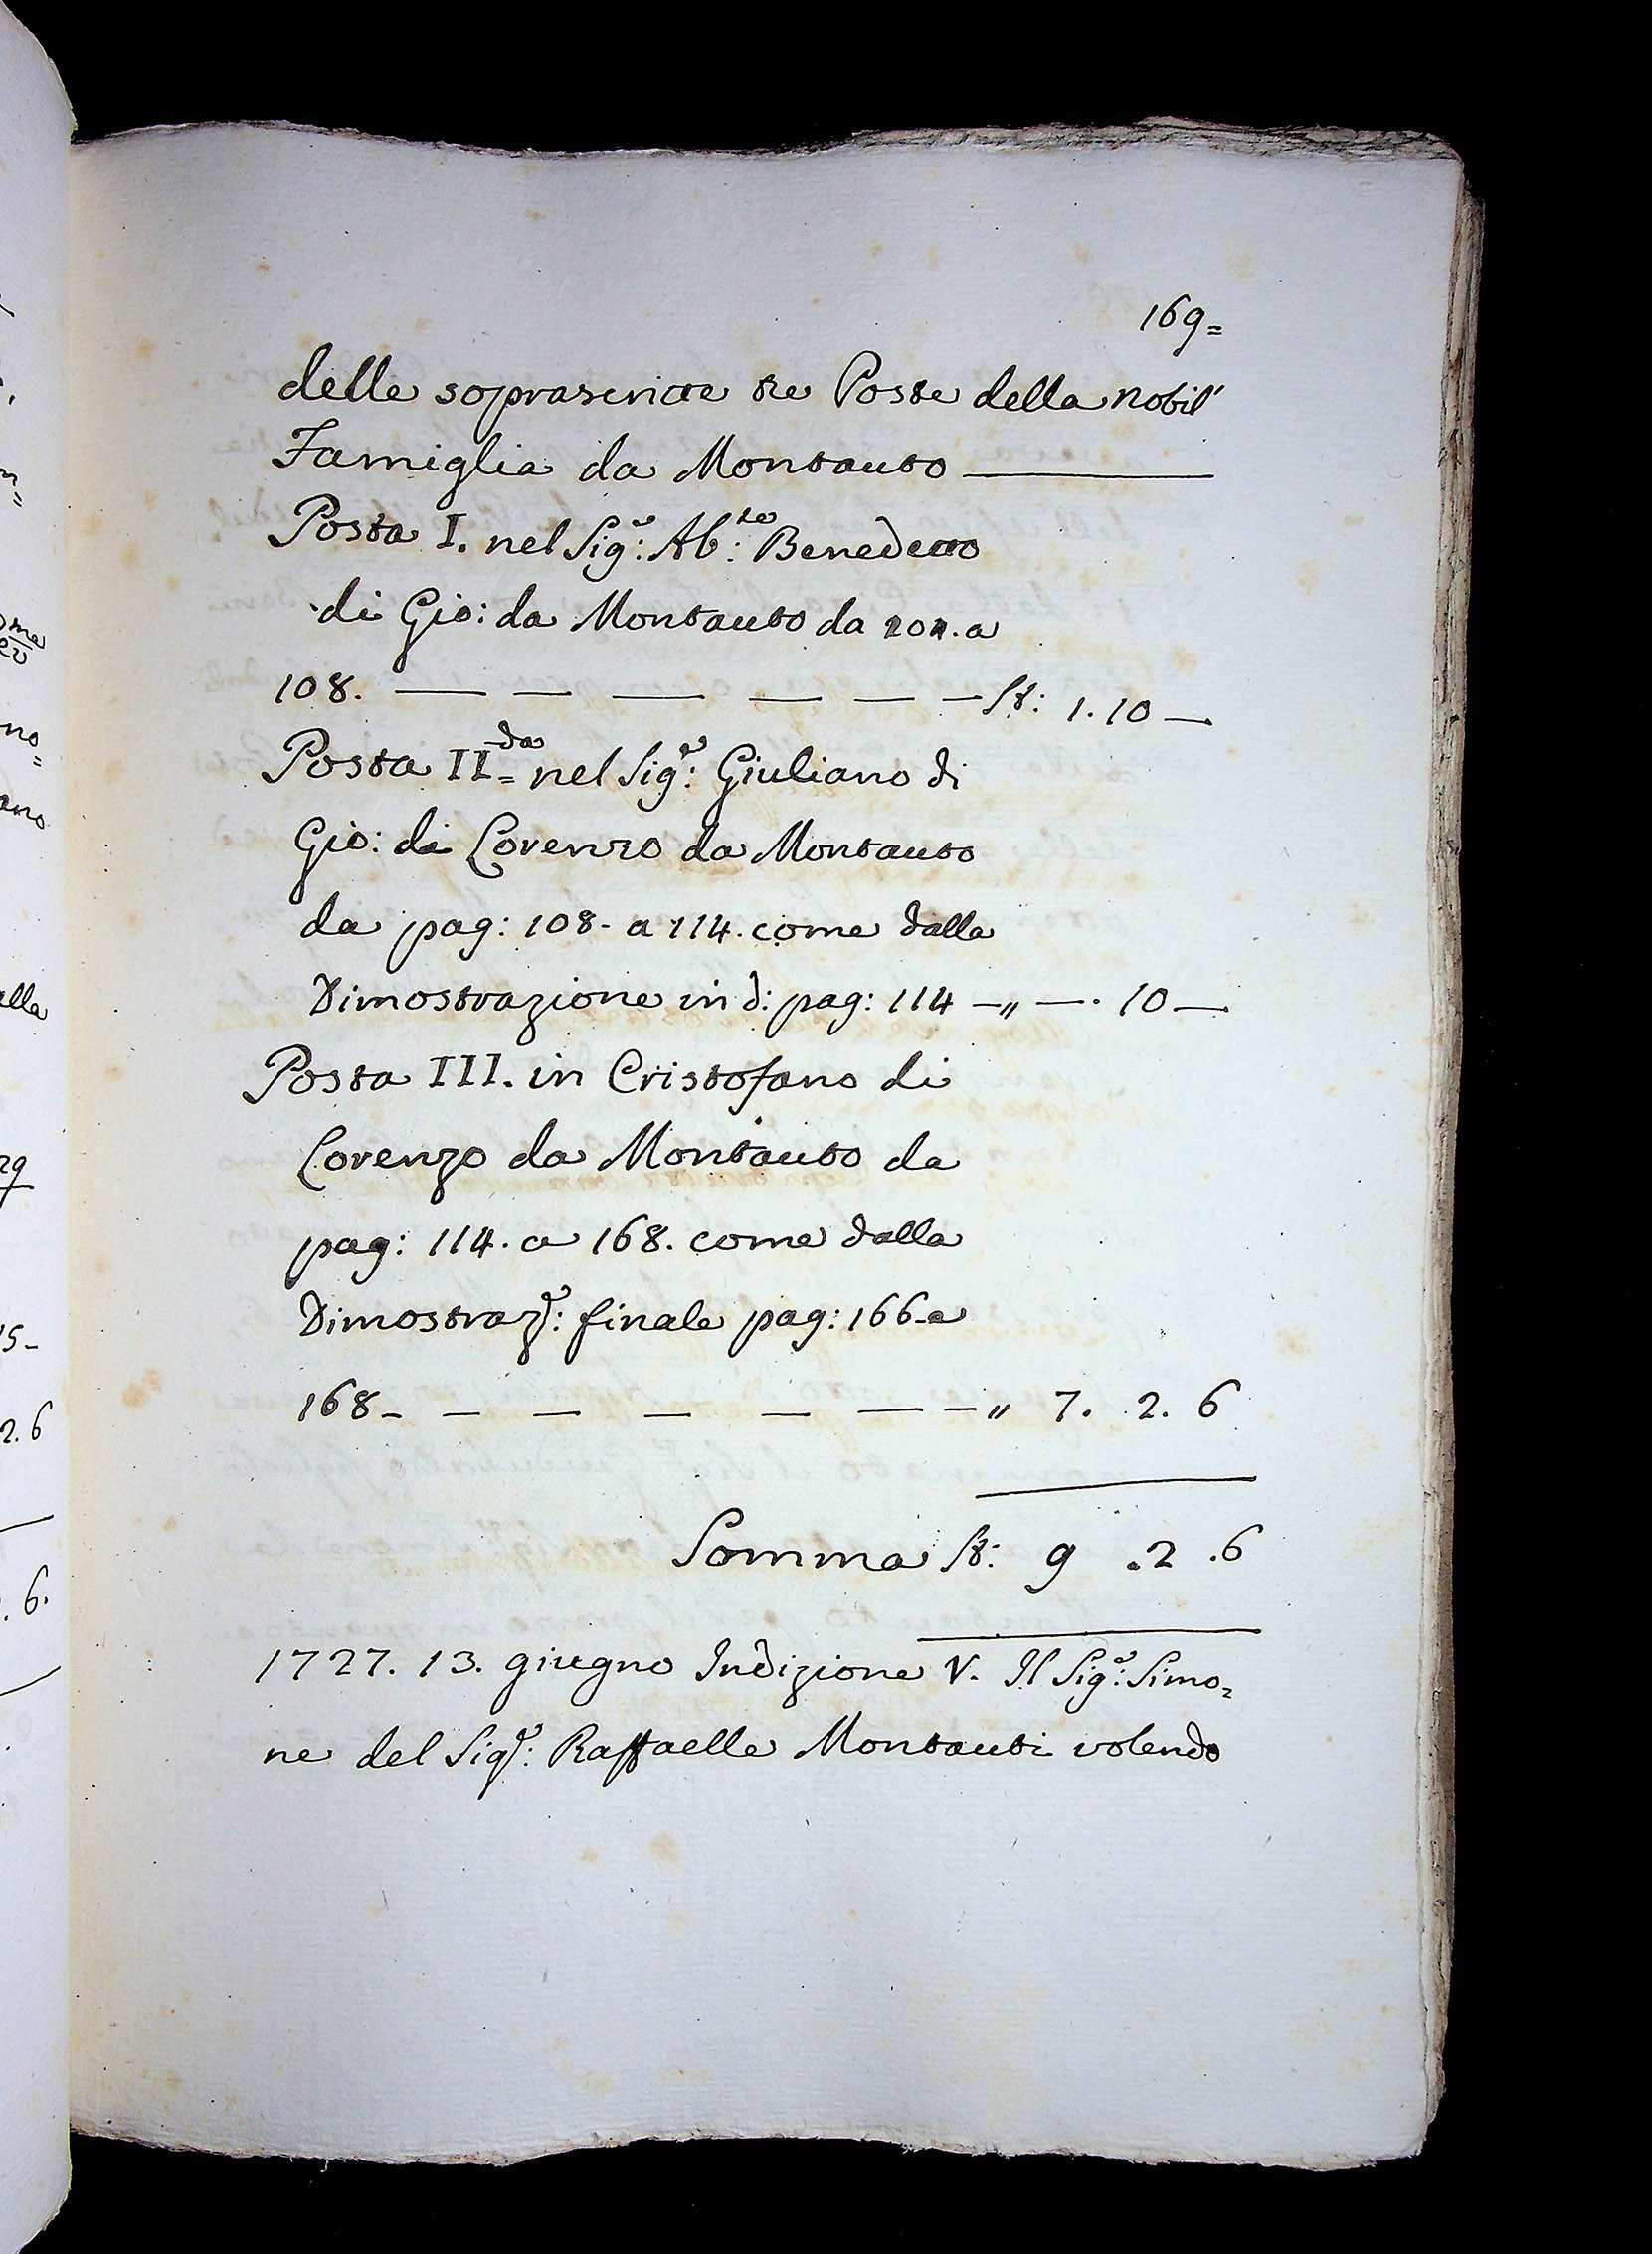 169=
delle soprascritte tre Poste della nobil'
Famiglia da Montauto
Posta I. nel Sig.r: Ab:te Benedetto
di Gio: da Montauto da 101. a
108. — — — — — — St: 1. 10 —
Posta II=da nel Sig.r: Giuliano di
Gio: di Lorenzo da Montauto
da pag: 108- a 114. come dalla
Dimostrazione in d: pag: 114 —" —. 10 —
Posta III. in Cristofano di
Lorenzo da Montauto da
pag: 114. a 168. come dalla
Dimostraz.e: finale pag: 166-a
168- — — — — — —" 7. 2. 6
Somma St: 9 .2 .6
1727. 13. giugno Indizione V. Il Sig.r: Simo=
ne del Sig.r: Raffaelle Montauti volendo